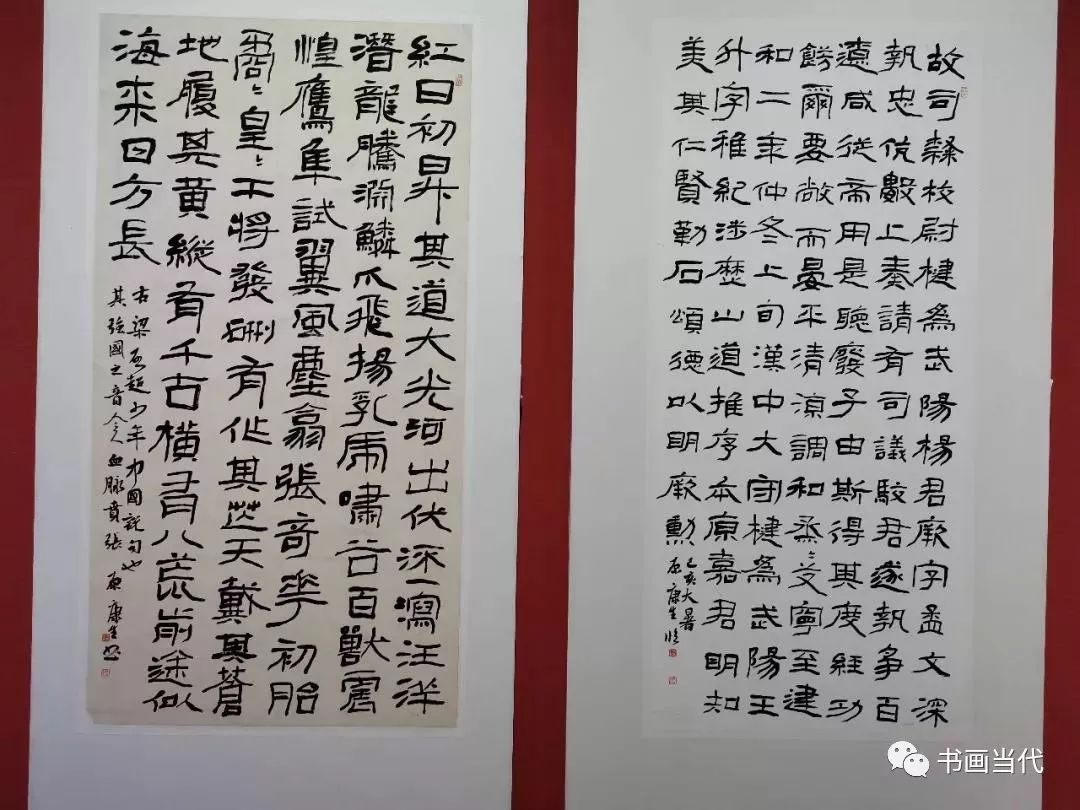 故司隸校尉楗為武陽楊君厥字孟文深
執忠伉數上奏請有司議駮君遂執爭百
遼咸從帝用是聽廢子由斯得其度經功
飭爾要敞而晏平清涼調和烝〻艾寧至建
和二年仲冬上旬漢中大守楗為武陽王
升字稚紀涉歷山道推序本原嘉君明知
美其仁賢勒石頌德以明厥勳
己亥大暑
原康生臨
紅日初昇其道大光河出伏流一瀉汪洋
潛龍騰淵鱗爪飛揚乳虎嘯谷百獸震
惶鷹隼試翼風塵翕張奇花初胎
矞〻皇〻干將發硎有作其芒天戴其蒼
地履其黃縱有千古橫有八荒前途似
海來日方長
右梁啟超少年中國說句也
其強國之音令人血脈賁張 原康生
书画当代